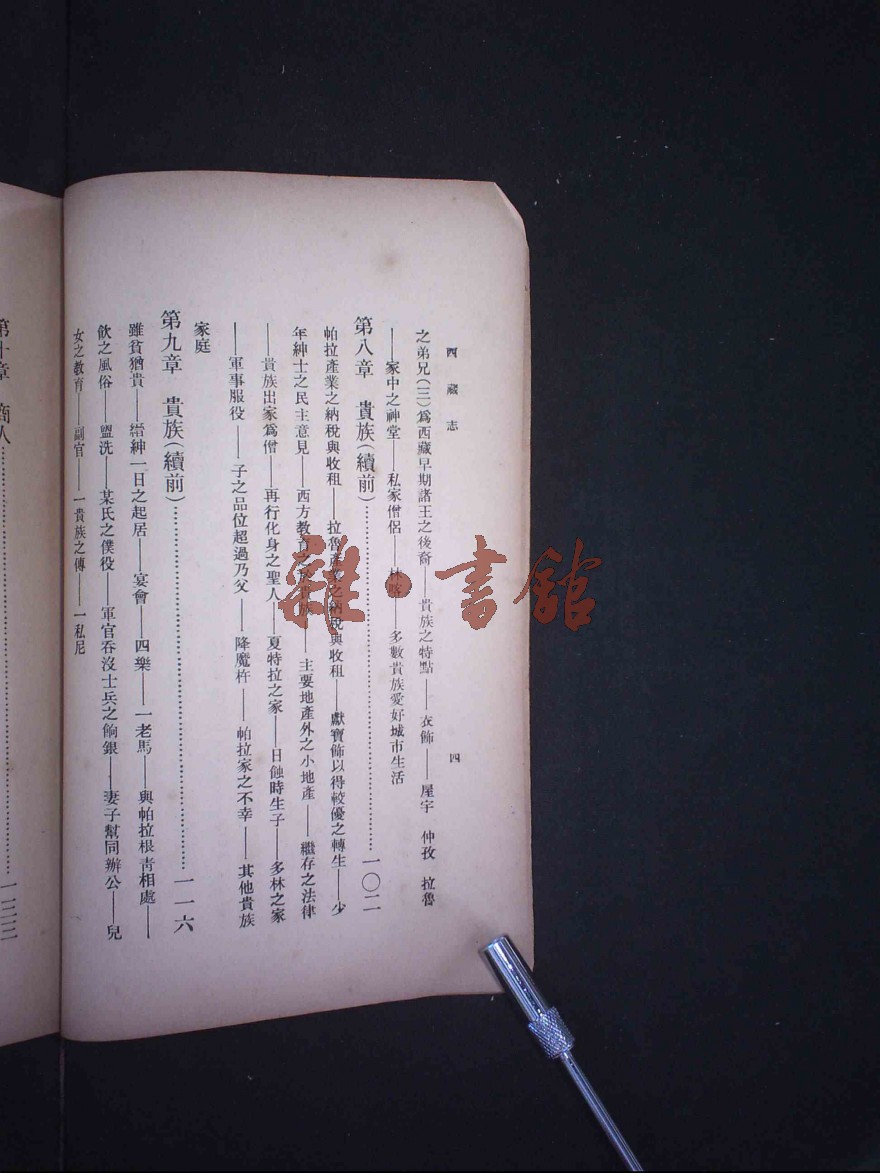 西藏志
四
之弟兄(三)爲西藏早期諸王之後裔——貴族之特點——衣飾——屋宇 仲孜 拉魯
——家中之神堂——私家僧侶——林喀——多數貴族愛好城市生活
第八章 貴族(續前)…………………………一〇二
帕拉產業之納稅與收租——拉魯產業之納稅與收租——獻寶飾以得較優之轉生——少
年紳士之民主意見——西方教育之——主要地產外之小地產——繼存之法律
——貴族出家爲僧——再行化身之聖人——夏特拉之家——日蝕時生子——多林之家
——軍事服役——子之品位超過乃父——降魔杵——帕拉家之不幸——其他貴族
家庭
第九章 貴族(續前)…………………………一一六
雖貧猶貴——縉紳一日之起居——宴會——四樂——一老馬——與帕拉根靑相處——
飲之風俗——盥洗——某氏之僕役——軍官吞沒士兵之餉銀——妻子幫同辦公——兒
女之教育——副官——一貴族之傳——一私尼
第十章 商人…………………………一三三
雜·書館